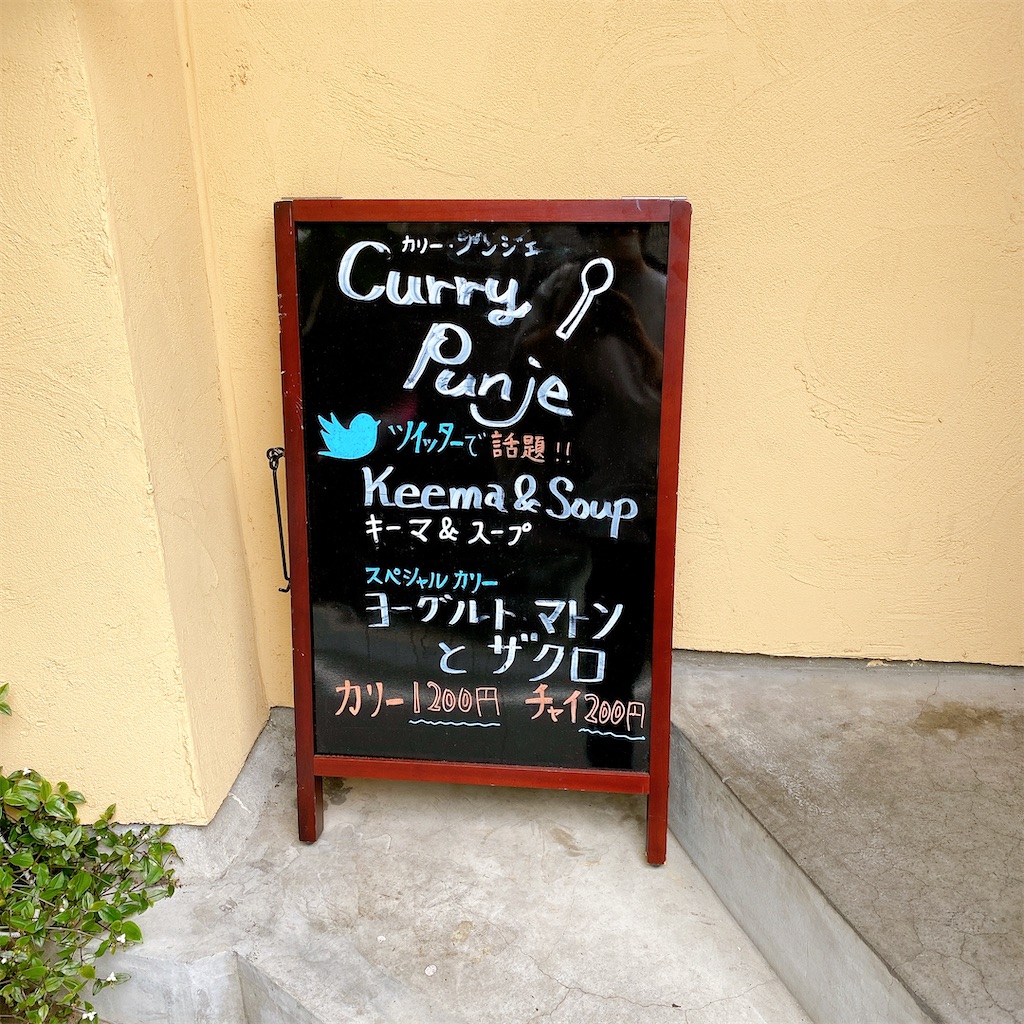 カリー・プンジェ
Curry
Punje
ツイッターで話題!!
Keema & Soup
キーマ & スープ
スペシャルカリー
ヨーグルト マトン
と ザクロ
カリー1200円 チャイ200円